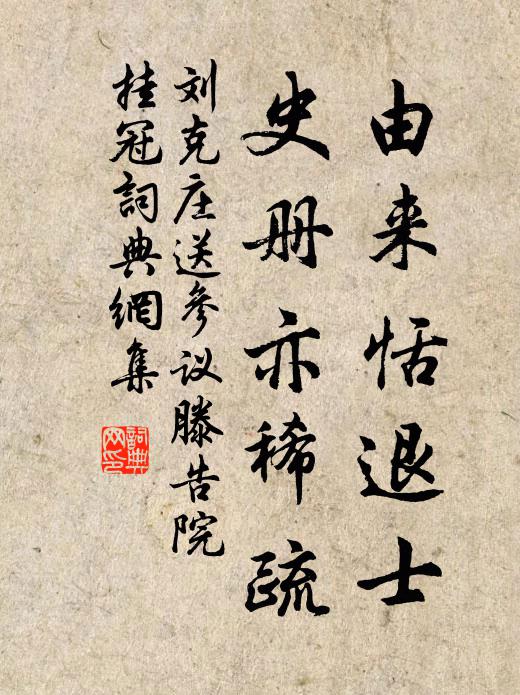 由来恬退士
史册亦稀疏
刘克庄送参议滕告院
挂冠詞典網集
詞典
网印